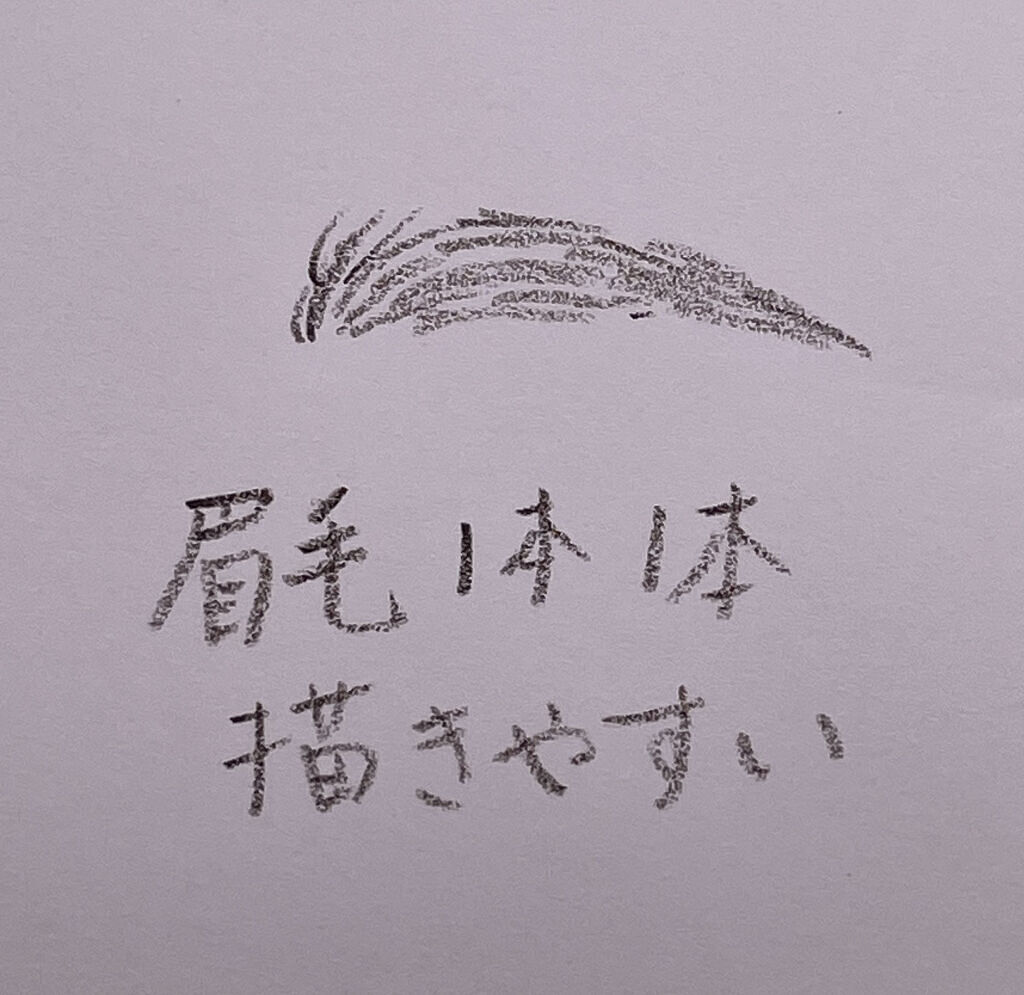 眉毛1本1本
描きやすい